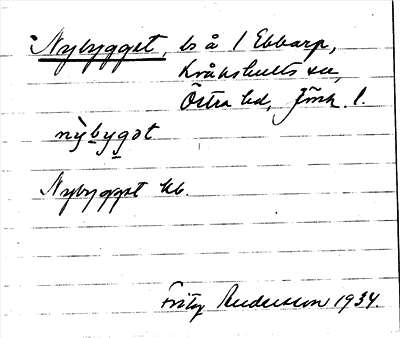 Nybygget, bs å 1 Ebbarp,
Kråkshults sn,
Östra hd, Jönk. l.
nỳbygət
Nybygget hb.
Fritz Andersson 1934.